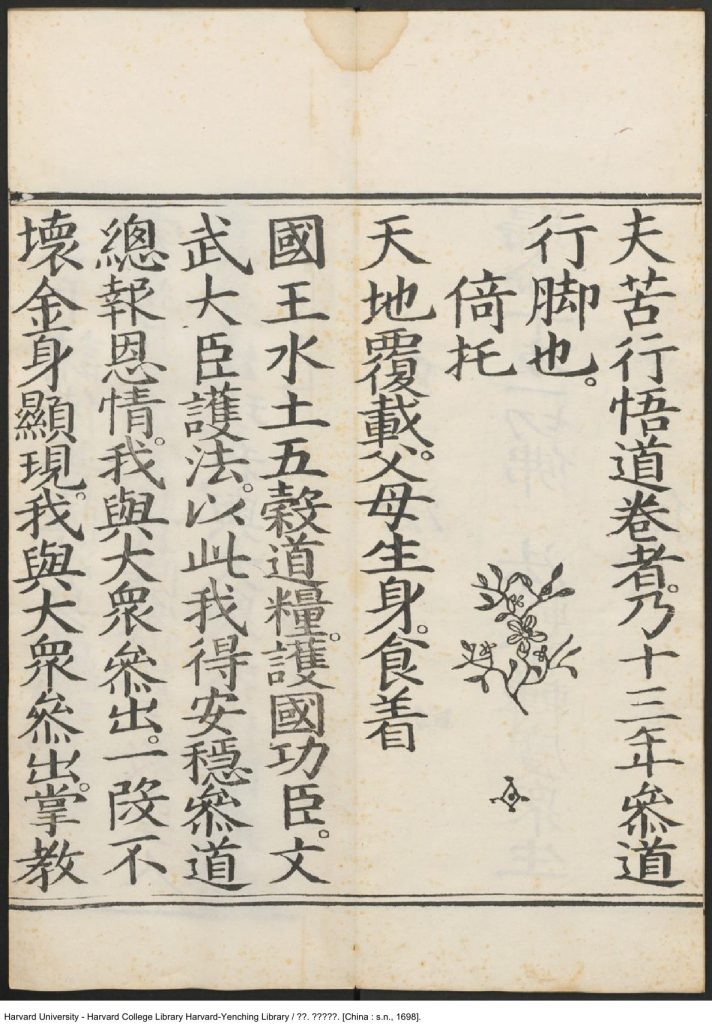 夫苦行悟道卷者。乃十三年叅道
行脚也。
倚托
天地覆載。父母生身。食着
國王水土五穀道糧。護國功臣。文
武大臣護法。以此我得安穩叅道
總報恩情。我與大衆叅出。一段不
壞金身顯現。我與大衆叅出。掌教
Harvard University - Harvard College Library Harvard-Yenching Library / ??. ?????. [China : s.n., 1698].